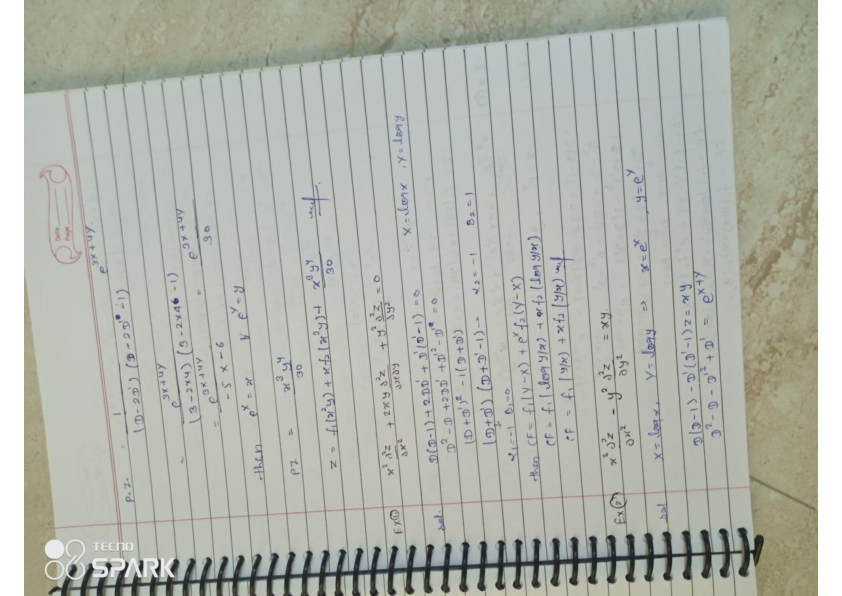 Date
Page
P.I. = 1 / (D-2D') (D-2D'-1) e^{3x+4Y}
= e^{3x+4Y} / (3-2x4) (3-2x4-1)
= e^{3x+4Y} / -5 x -6 = e^{3x+4Y} / 30
then e^x = x & e^Y = y
PI = x^3 y^4 / 30
z = f₁(x²y) + x f₂(x²y) + x³y⁴ / 30
x² ∂²z/∂x² + 2xy ∂²z/∂x∂y + y² ∂²z/∂y² = 0
Sol. X = log x, Y = log y
D(D-1) + 2DD' + D'(D'-1) = 0
D² - D + 2DD' + D'² - D' = 0
(D+D')² - 1(D+D')
(D+D') (D+D'-1) α₂ = -1 β₂ = 1
α₁ = -1 β₁ = 0
then CF = f₁(Y-X) + e^x f₂(Y-X)
CF = f₁(log y/x) + x f₂(log y/x)
CF = f₁(y/x) + x f₂(y/x)
x² ∂²z/∂x² - y² ∂²z/∂y² = xy
Sol X = log x, Y = log y ⇒ x = e^X, y = e^Y
D(D-1) - D'(D'-1) z = xy
D² - D - D'² + D' = e^{x+Y}
TECNO
SPARK